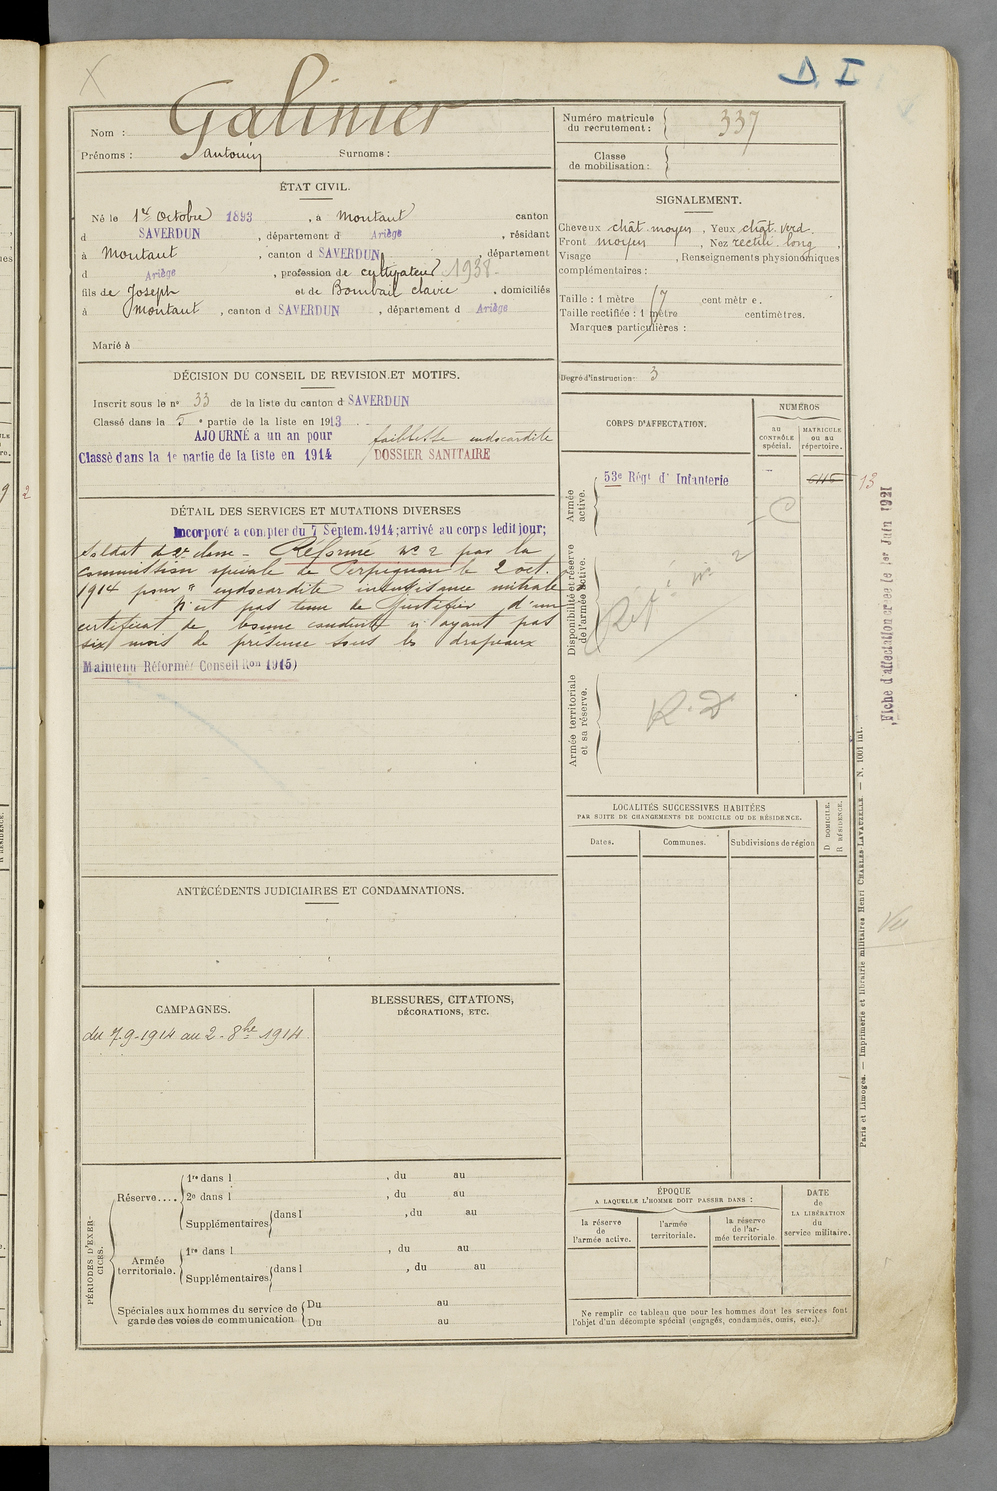 D. I
Galinier
Nom :
Prénoms : antonin Surnoms :
Numéro matricule du recrutement : 337
Classe de mobilisation :
ÉTAT CIVIL.
Né le 1er Octobre 1893, à Montaut canton
d SAVERDUN, département d Ariège, résidant
à Montaut, canton d SAVERDUN, département
d Ariège, profession de cultivateur 1938
fils de Joseph et de Bombail claire, domiciliés
à Montaut, canton d SAVERDUN, département d Ariège
Marié à
SIGNALEMENT.
Cheveux chât. moyen. Yeux chât. verd.
Front moyen, Nez rectili. long,
Visage , Renseignements physionomiques
complémentaires :
Taille : 1 mètre 67 centimètre.
Taille rectifiée : 1 mètre centimètres.
Marques particulières :
Degré d'instruction : 3
DÉCISION DU CONSEIL DE REVISION ET MOTIFS.
Inscrit sous le n° 33 de la liste du canton d SAVERDUN
Classé dans la 5e partie de la liste en 1913
AJOURNÉ a un an pour faiblesse endocardite
Classé dans la 1e partie de la liste en 1914 DOSSIER SANITAIRE
DÉTAIL DES SERVICES ET MUTATIONS DIVERSES
Incorporé a compter du 7 Septem. 1914; arrivé au corps ledit jour;
Soldat de 2e classe - Réformé N° 2 par la
commission spéciale de Perpignan le 2 oct.
1914 pour "endocardite insuffisance mitrale"
N'est pas tenu de justifier d'un
certificat de bonne conduite n'ayant pas
six mois de présence sous les drapeaux
Maintenu Réformé (Conseil Ron 1915)
CORPS D'AFFECTATION.
NUMÉROS
au CONTRÔLE spécial.
MATRICULE ou au répertoire.
Armée active.
53e Régt d' Infanterie
13
Disponibilité et réserve de l'armée active.
Réf é n° 2
Armée territoriale et sa réserve.
R. D
Fiche d'affectation créée le 1er Juin 1921
LOCALITÉS SUCCESSIVES HABITÉES
PAR SUITE DE CHANGEMENTS DE DOMICILE OU DE RÉSIDENCE.
Dates. Communes. Subdivisions de région
D. DOMICILE.
R. RÉSIDENCE.
ANTÉCÉDENTS JUDICIAIRES ET CONDAMNATIONS.
Vu
CAMPAGNES.
du 7-9-1914 au 2-8bre 1914.
BLESSURES, CITATIONS,
DÉCORATIONS, ETC.
PÉRIODES D'EXERCICES.
Réserve.... 1re dans l , du au
2e dans l , du au
Supplémentaires dans l , du au
Armée territoriale. 1re dans l , du au
Supplémentaires dans l , du au
Spéciales aux hommes du service de garde des voies de communication Du au
Du au
ÉPOQUE
A LAQUELLE L'HOMME DOIT PASSER DANS :
la réserve de l'armée active.
l'armée territoriale.
la réserve de l'armée territoriale
DATE de LA LIBÉRATION du service militaire.
Ne remplir ce tableau que pour les hommes dont les services font
l'objet d'un décompte spécial (engagés, condamnés, omis, etc.).
Paris et Limoges. — Imprimerie et librairie militaires Henri CHARLES-LAVAUZELLE. — N. 1001 int.